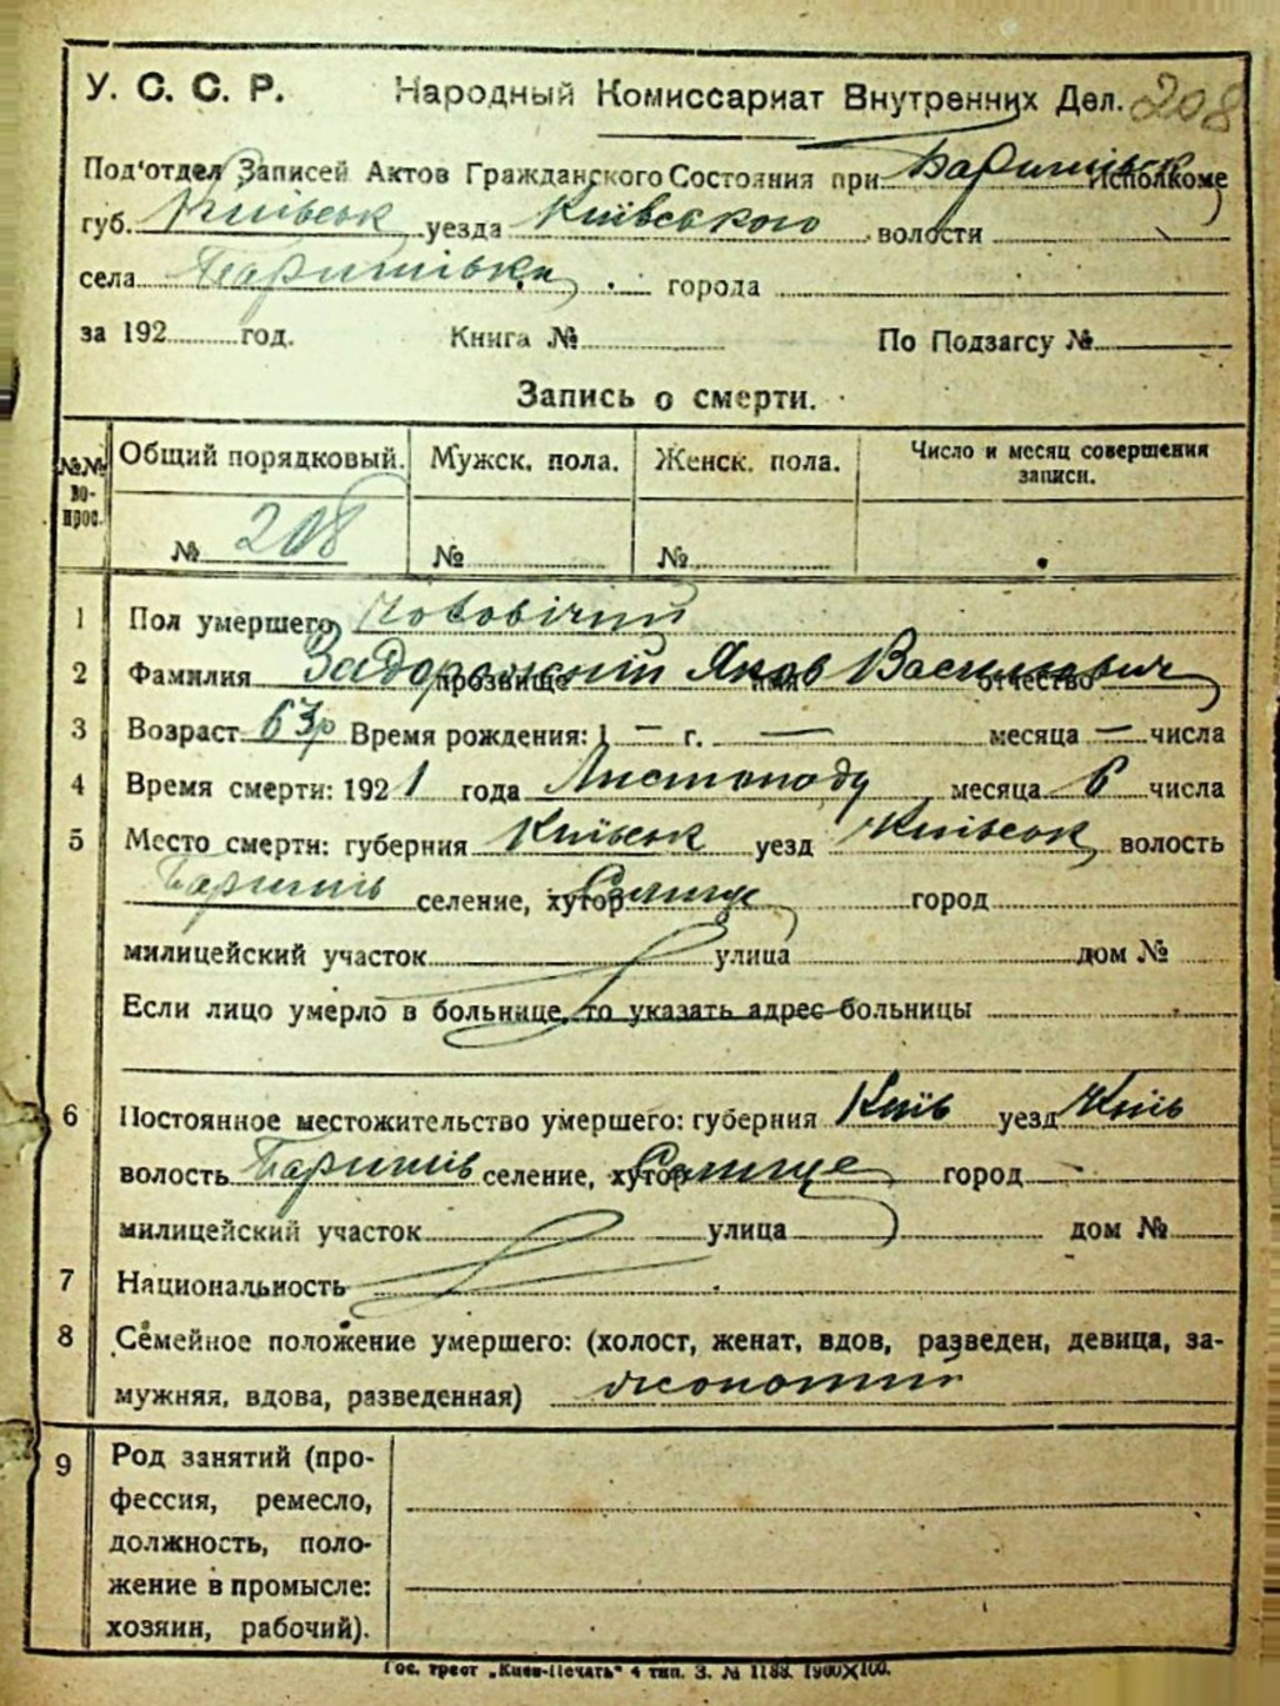 У. С. С. Р. Народный Комиссариат Внутренних Дел. 208
Под'отдел Записей Актов Гражданского Состояния при Баришівск Исполкоме
губ. Київськ уезда Київського волости
села Баришівка города
за 192 год. Книга № По Подзагсу №
Запись о смерти.
№№ во-прос. Общий порядковый. Мужск. пола. Женск. пола. Число и месяц совершения записи.
№ 208 № №
1 Пол умершего Чоловічий
2 Фамилия Задорожній прозвище Яков имя Васильевич отчество
3 Возраст 63р Время рождения: 1 — г. — месяца — числа
4 Время смерти: 1921 года Листопаду месяца 6 числа
5 Место смерти: губерния Київськ уезд Київськ волость
Баришів селение, хутор Селище город
милицейский участок улица дом №
Если лицо умерло в больнице, то указать адрес больницы
6 Постоянное местожительство умершего: губерния Київ уезд Київ
волость Баришів селение, хутор Селище город
милицейский участок улица дом №
7 Национальность
8 Семейное положение умершего: (холост, женат, вдов, разведен, девица, за-
мужняя, вдова, разведенная) жонатий
9 Род занятий (про-
фессия, ремесло,
должность, поло-
жение в промысле:
хозяин, рабочий).
Гос. трест „Киев-Печать" 4 тип. З. № 1188. 1900X100.